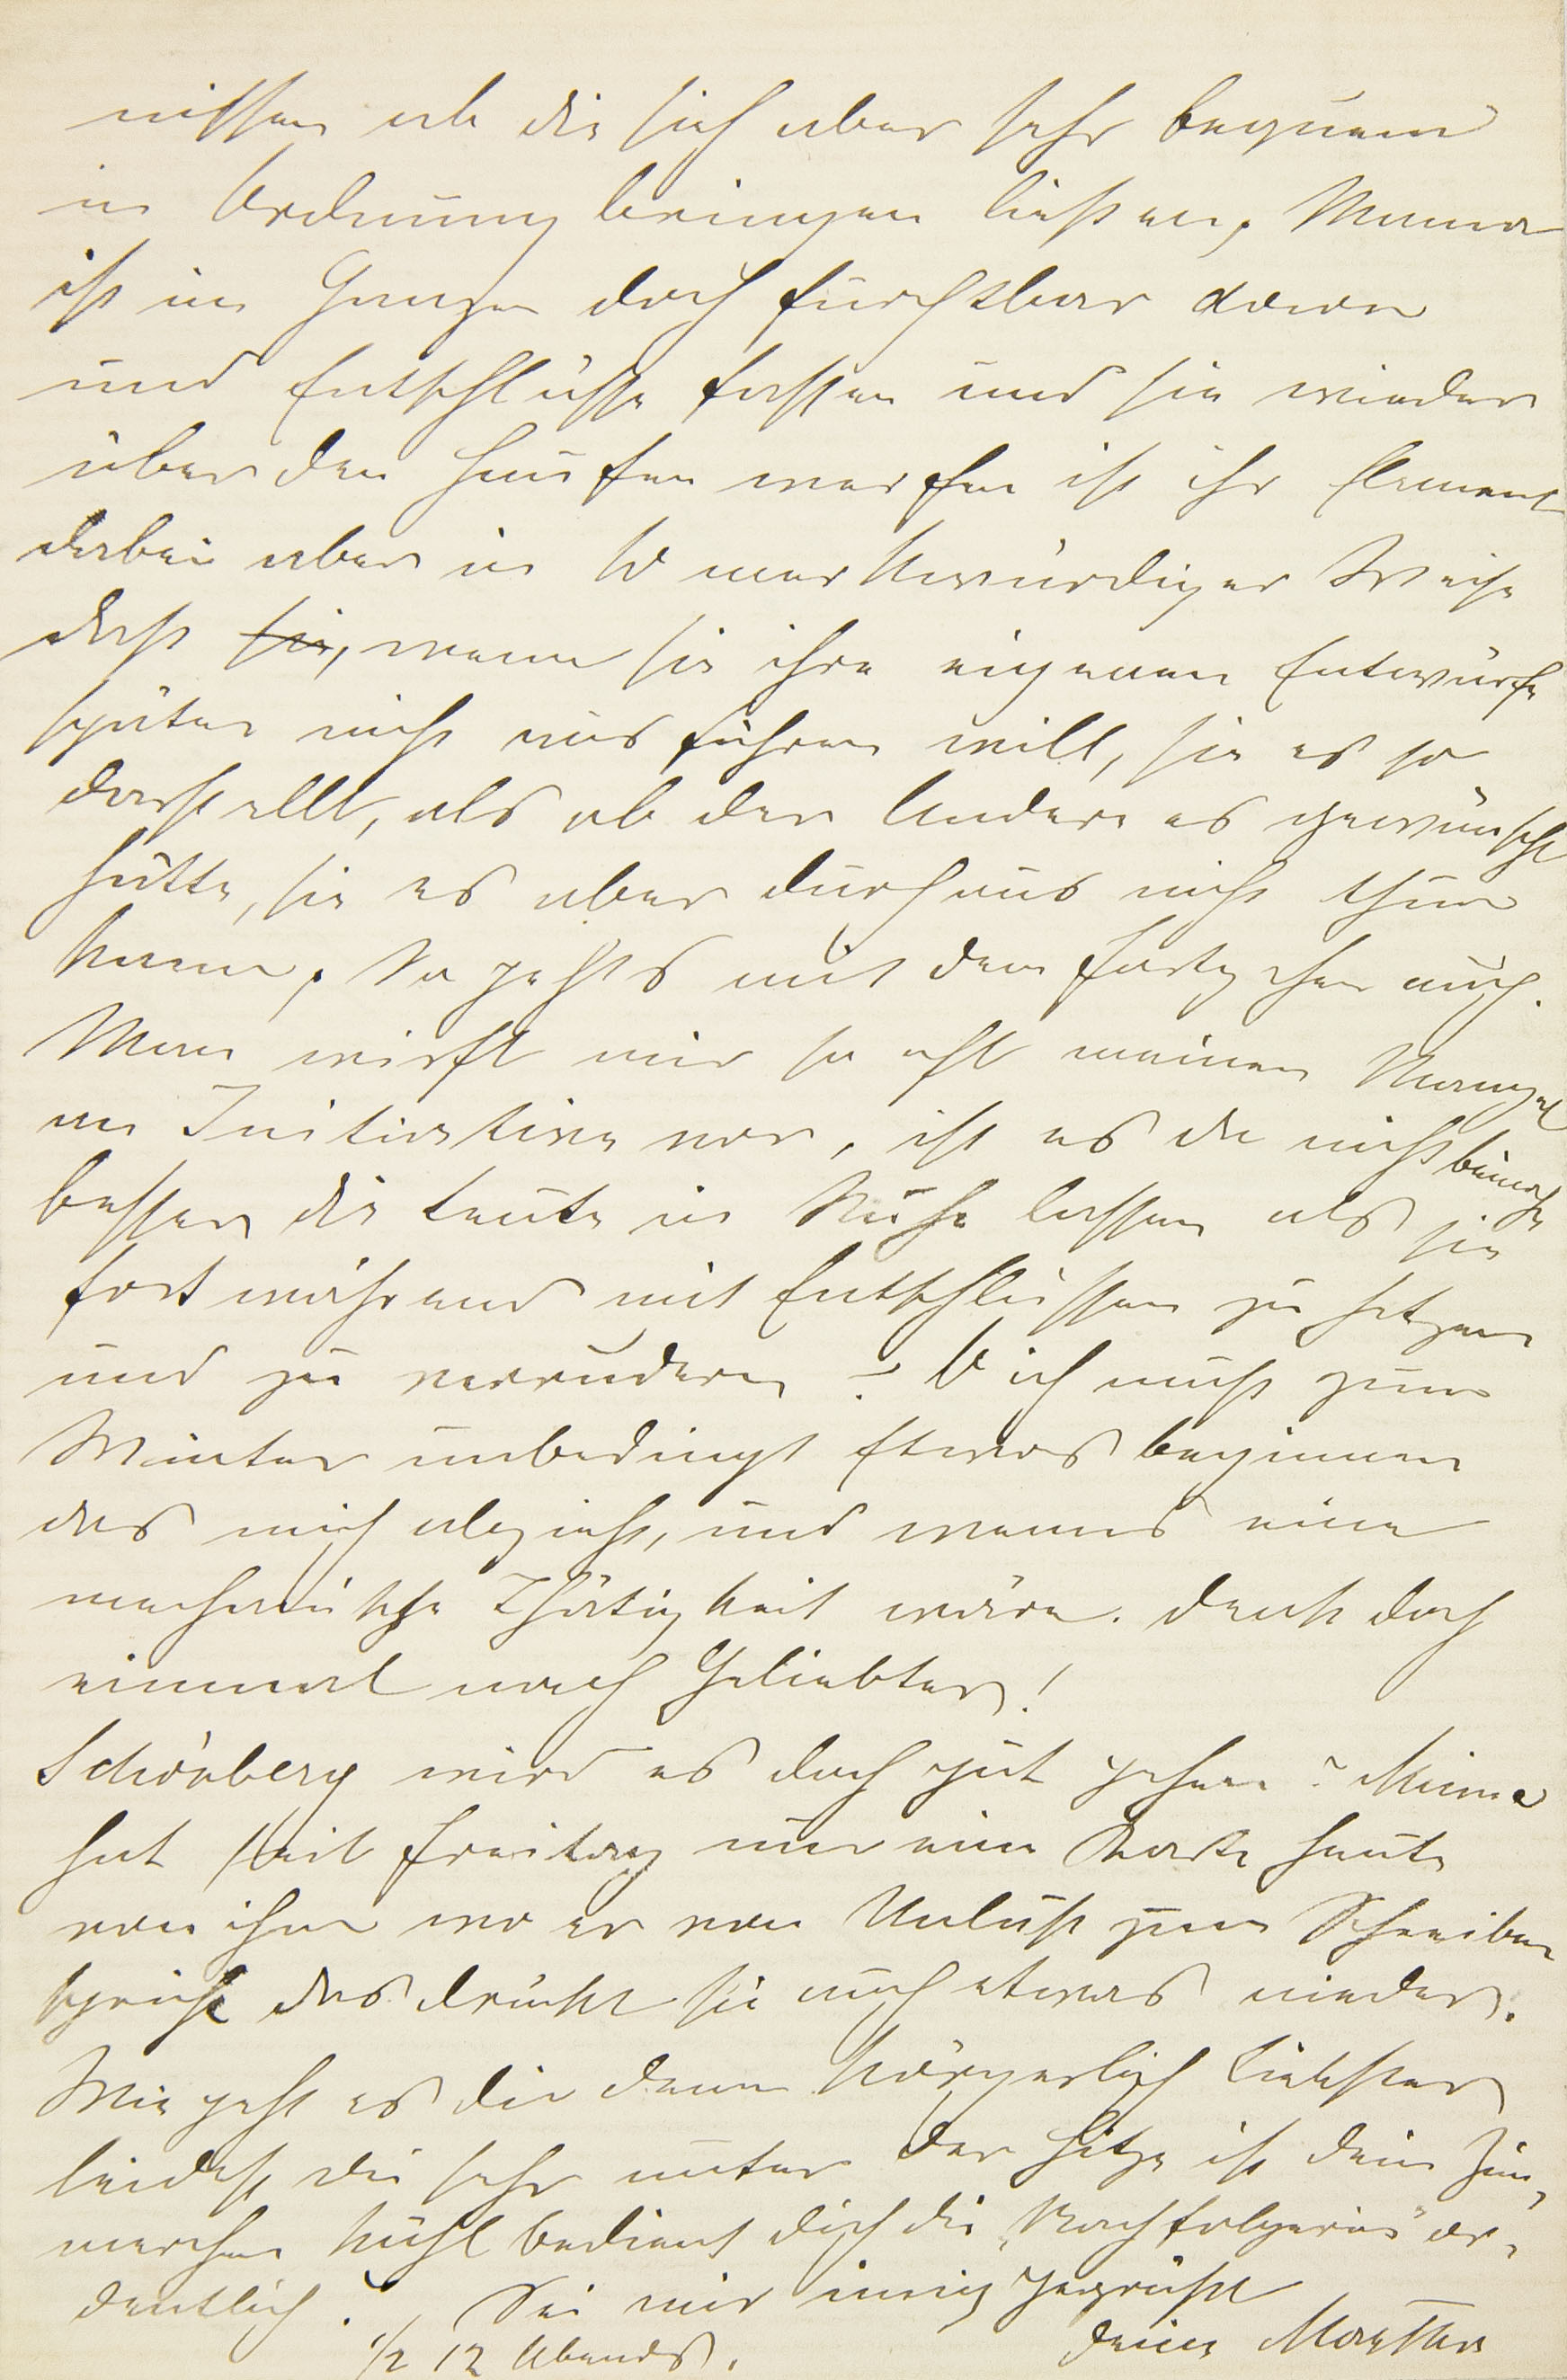 nissen ab die sich aber sehr bequem
in Ordnung bringen ließen. Mama
ist im Ganzen doch furchtbar daran
und Entschlüsse fassen und sie wieder
über den Haufen werfen ist ihr Element
dabei aber in so merkwürdiger Weise
daß sie, wenn sie ihre eigenen Entwürfe
später nicht ausführen will, sie es so
darstellt, als ob der Andere es gewünscht
hätte, sie es aber durchaus nicht thun
kann. So gehts mit dem Fortziehen auch.
Man wirft mir so oft meinen Mangel
an Initiative vor, ist es da nicht beinahe
besser die Leute in Ruhe lassen als sie
fortwährend mit Entschlüssen zu hetzen
und zu verändern? O ich muß zum
Winter unbedingt Etwas beginnen
das mich abzieht, und wenns eine
mechanische Thätigkeit wäre. Denk doch
einmal nach Geliebter!
Schönberg wird es doch gut gehen? Minna
hat seit Freitag nur eine Karte heute
von ihm wo er von Unlust zum Schreiben
spricht das drückt sie auch etwas nieder.
Wie geht es dir denn körperlich Liebster
leidest du sehr unter der Hitze ist dein Zim-
merchen kühl bedient dich die „Nachfolgerin" or-
dentlich? Sei mir innig gegrüßt
1/2 12 Abends. deine Martha